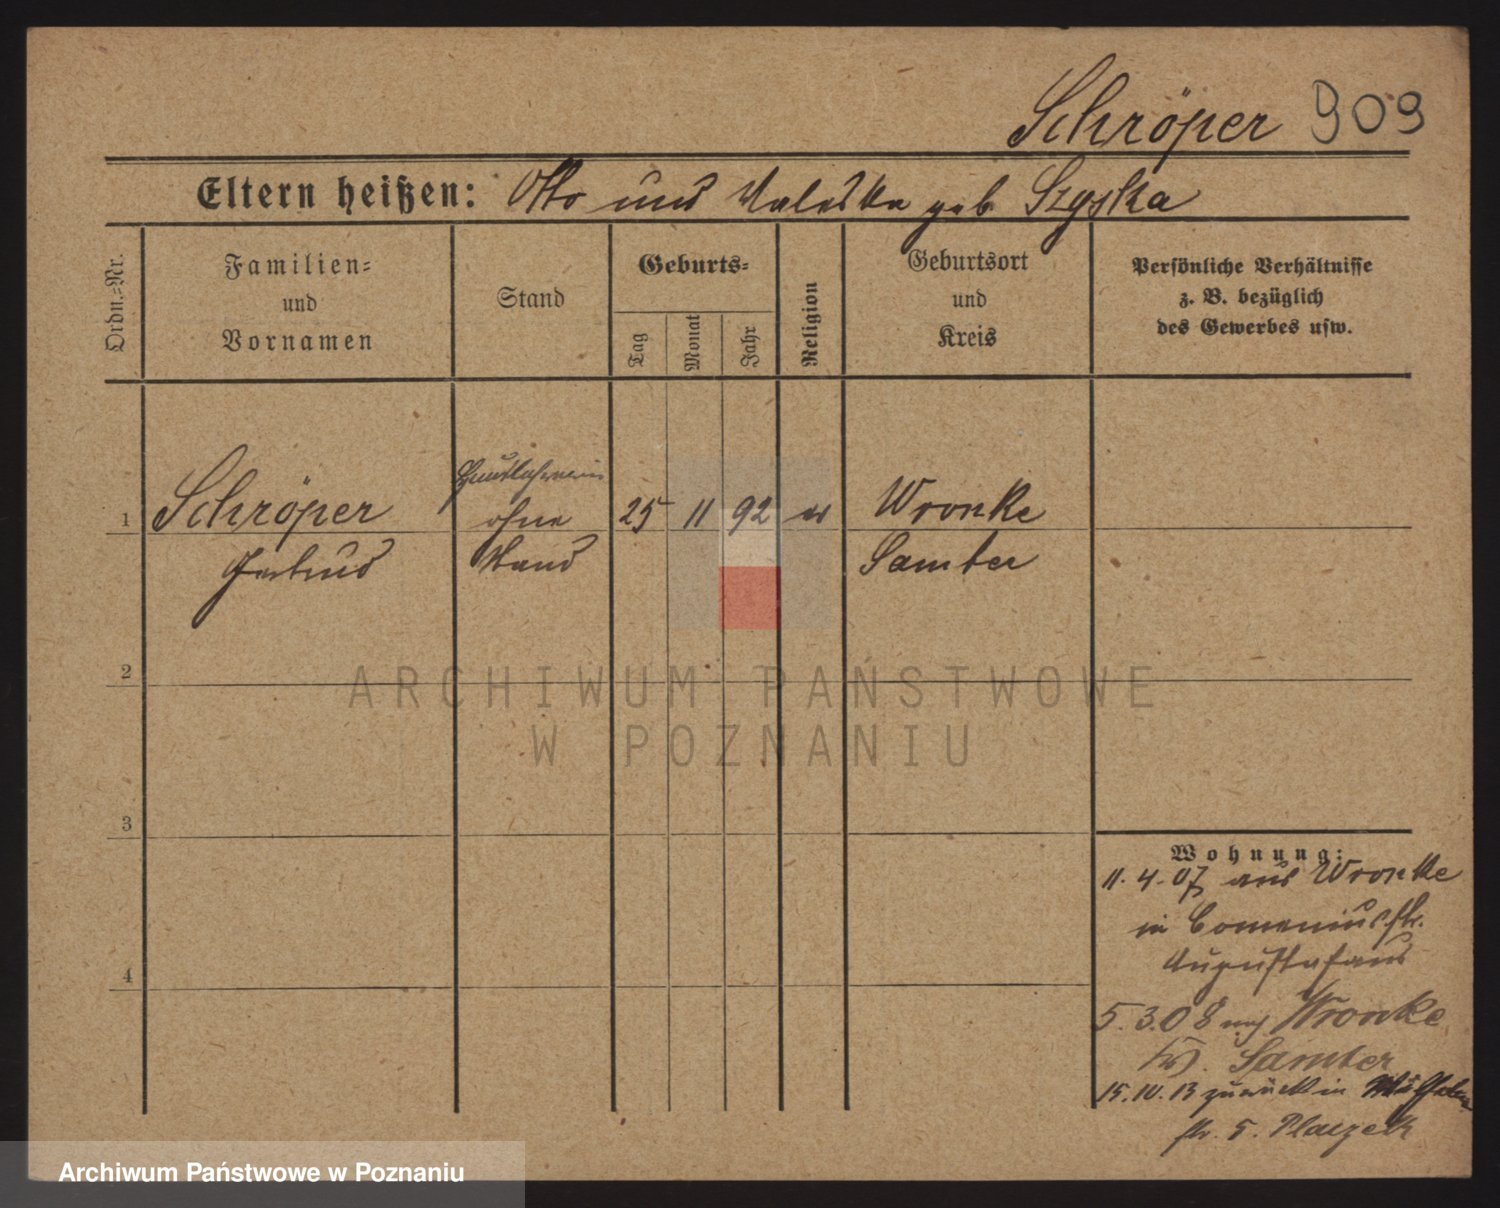 Schröper 909
Eltern heißen: Otto und Valeska geb. Szyska
Ordn.-Nr.
Familien-
und
Vornamen
Stand
Geburts-
Tag
Monat
Jahr
Religion
Geburtsort
und
Kreis
Persönliche Verhältnisse
z. B. bezüglich
des Gewerbes usw.
1 Schröper ohne 25 11 92 ev Wronke
Gertrud Stand Samter
2
3
4
Wohnung:
11.4.07 aus Wronke
in Comeniusstr.
Augustahaus
5.3.08 nach Wronke
Samter
15.10.13 zurück in
str. 5. Placzek
ARCHIWUM PAŃSTWOWE
W POZNANIU
Archiwum Państwowe w Poznaniu